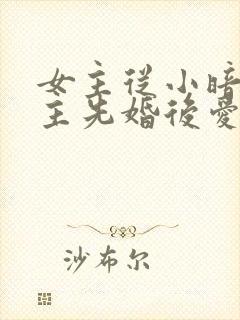 女主從小暗
主先婚後愛
沙布尔